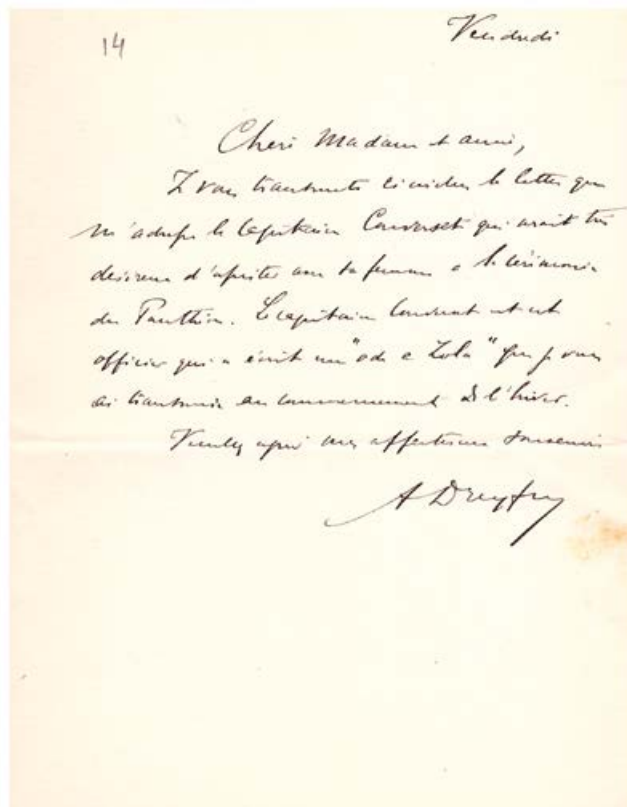 14
Vendredi
Chère Madame et amie,
Je vous transmets ci-inclus la lettre que
m'adresse le Capitaine Converset qui serait très
désireux d'assister avec sa femme à la cérémonie
du Panthéon. Le capitaine Converset est cet
officier qui a écrit une "ode à Zola" que je vous
ai transmise au commencement de l'hiver.
Veuillez agréer mes affectueux souvenirs
A Dreyfus